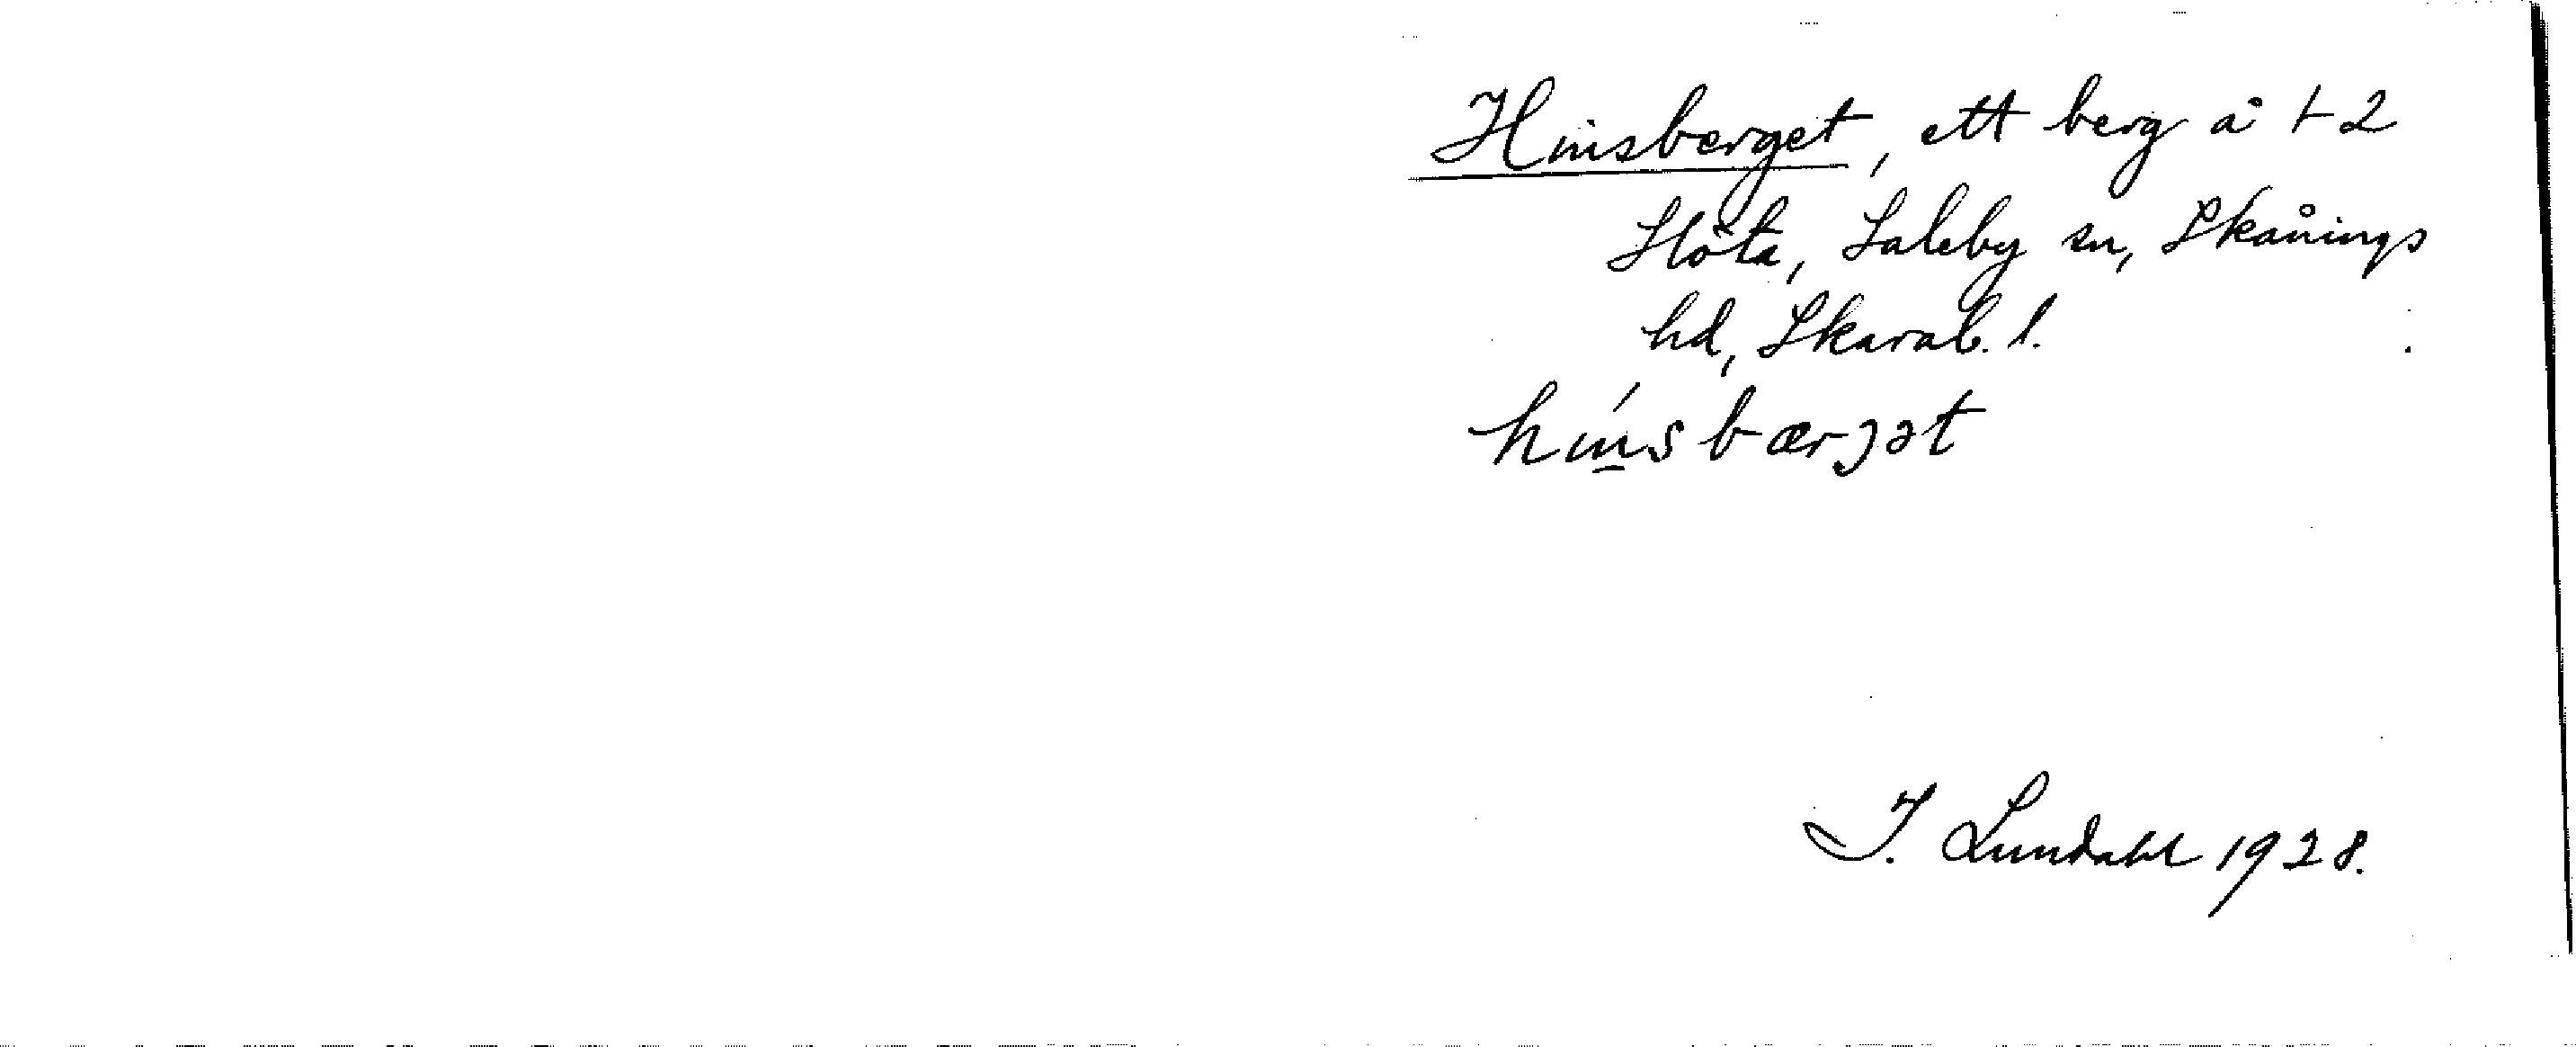 Hinsberget, ett berg å 1-2
Slöta, Saleby sn, Skånings
hd, Skarab. l.
hinsbærjət
I. Lundahl 1928.